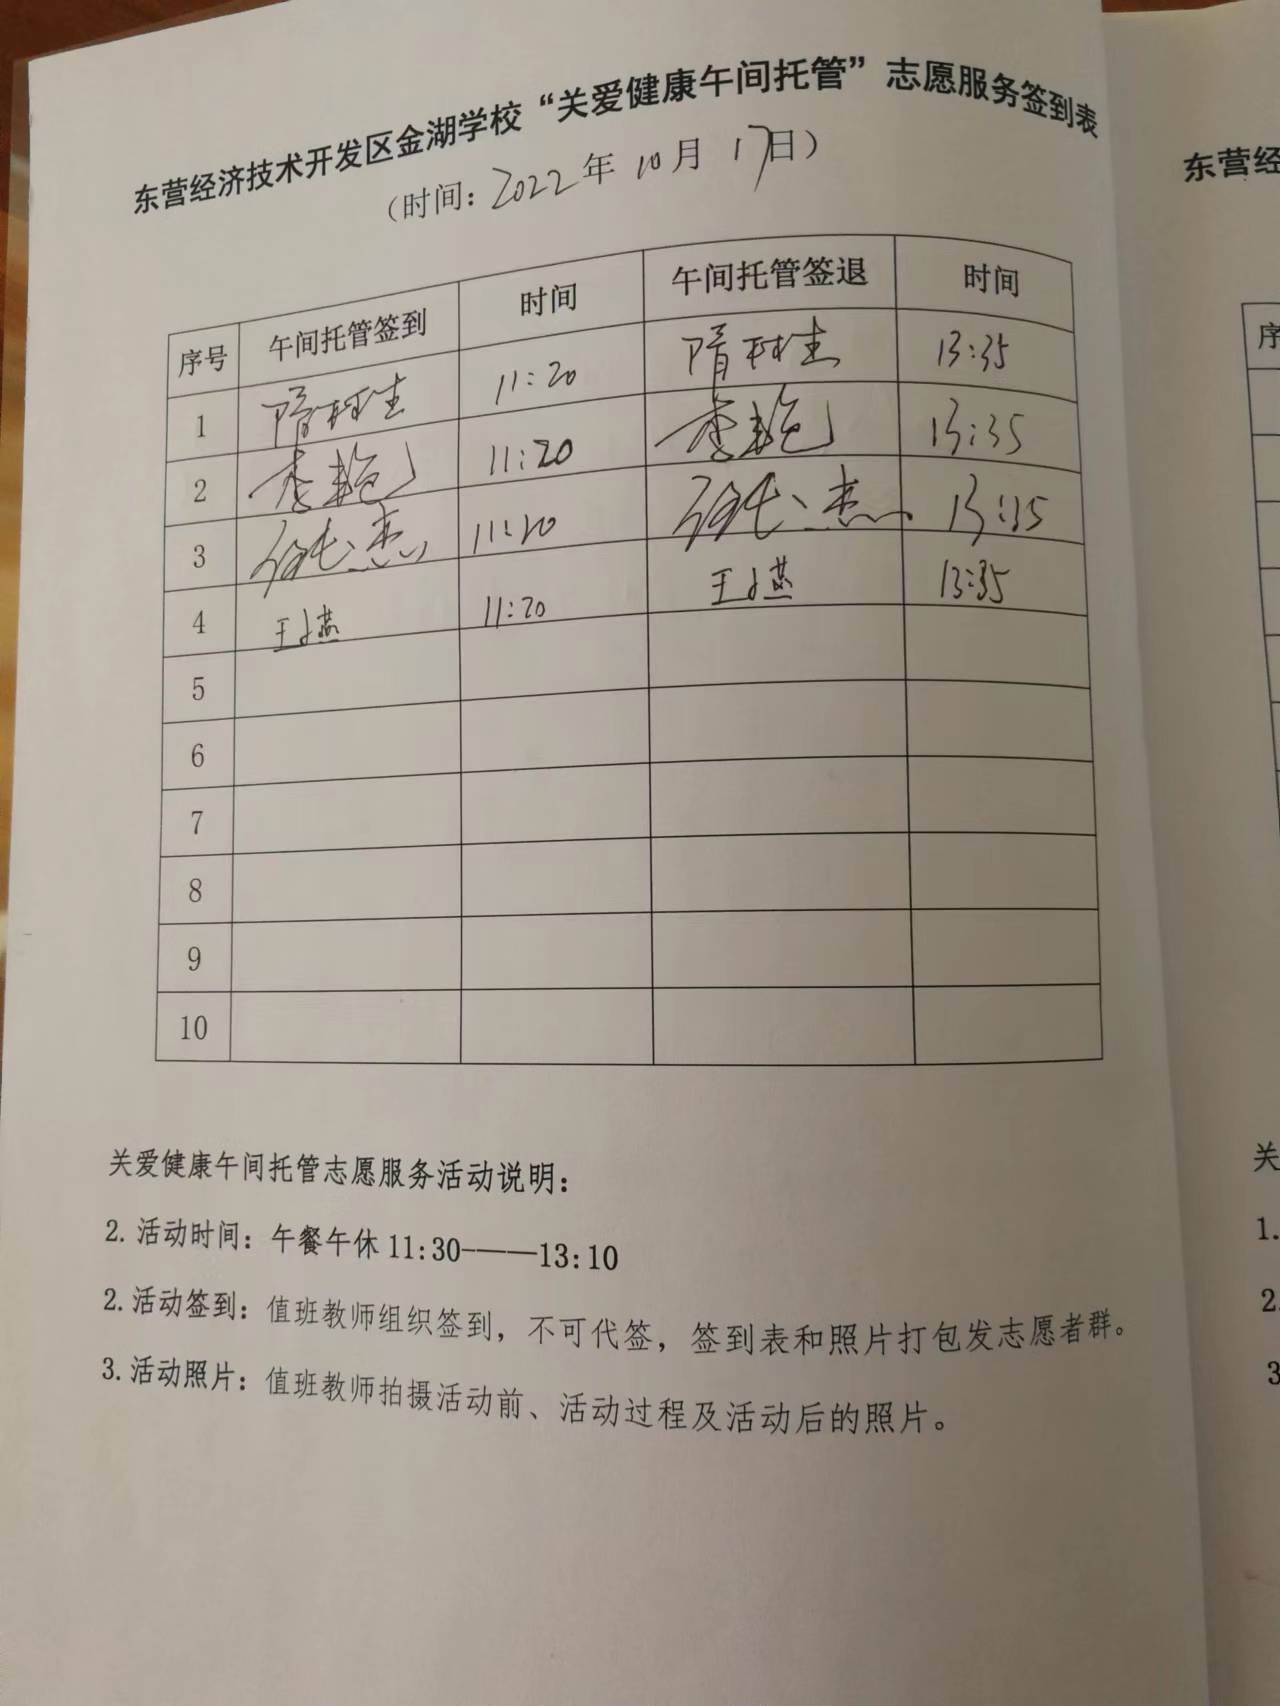 东营经济技术开发区金湖学校“关爱健康午间托管”志愿服务签到表
（时间：2022年10月17日）
序号 午间托管签到 时间 午间托管签退 时间
1 隋 11:20 隋 13:35
2 李 11:20 李 13:35
3 11:20 13:35
4 王小燕 11:20 王小燕 13:35
5
6
7
8
9
10
关爱健康午间托管志愿服务活动说明：
2. 活动时间：午餐午休 11:30-——13:10
2. 活动签到：值班教师组织签到，不可代签，签到表和照片打包发志愿者群。
3. 活动照片：值班教师拍摄活动前、活动过程及活动后的照片。
东营经
序
关
1.
2.
3